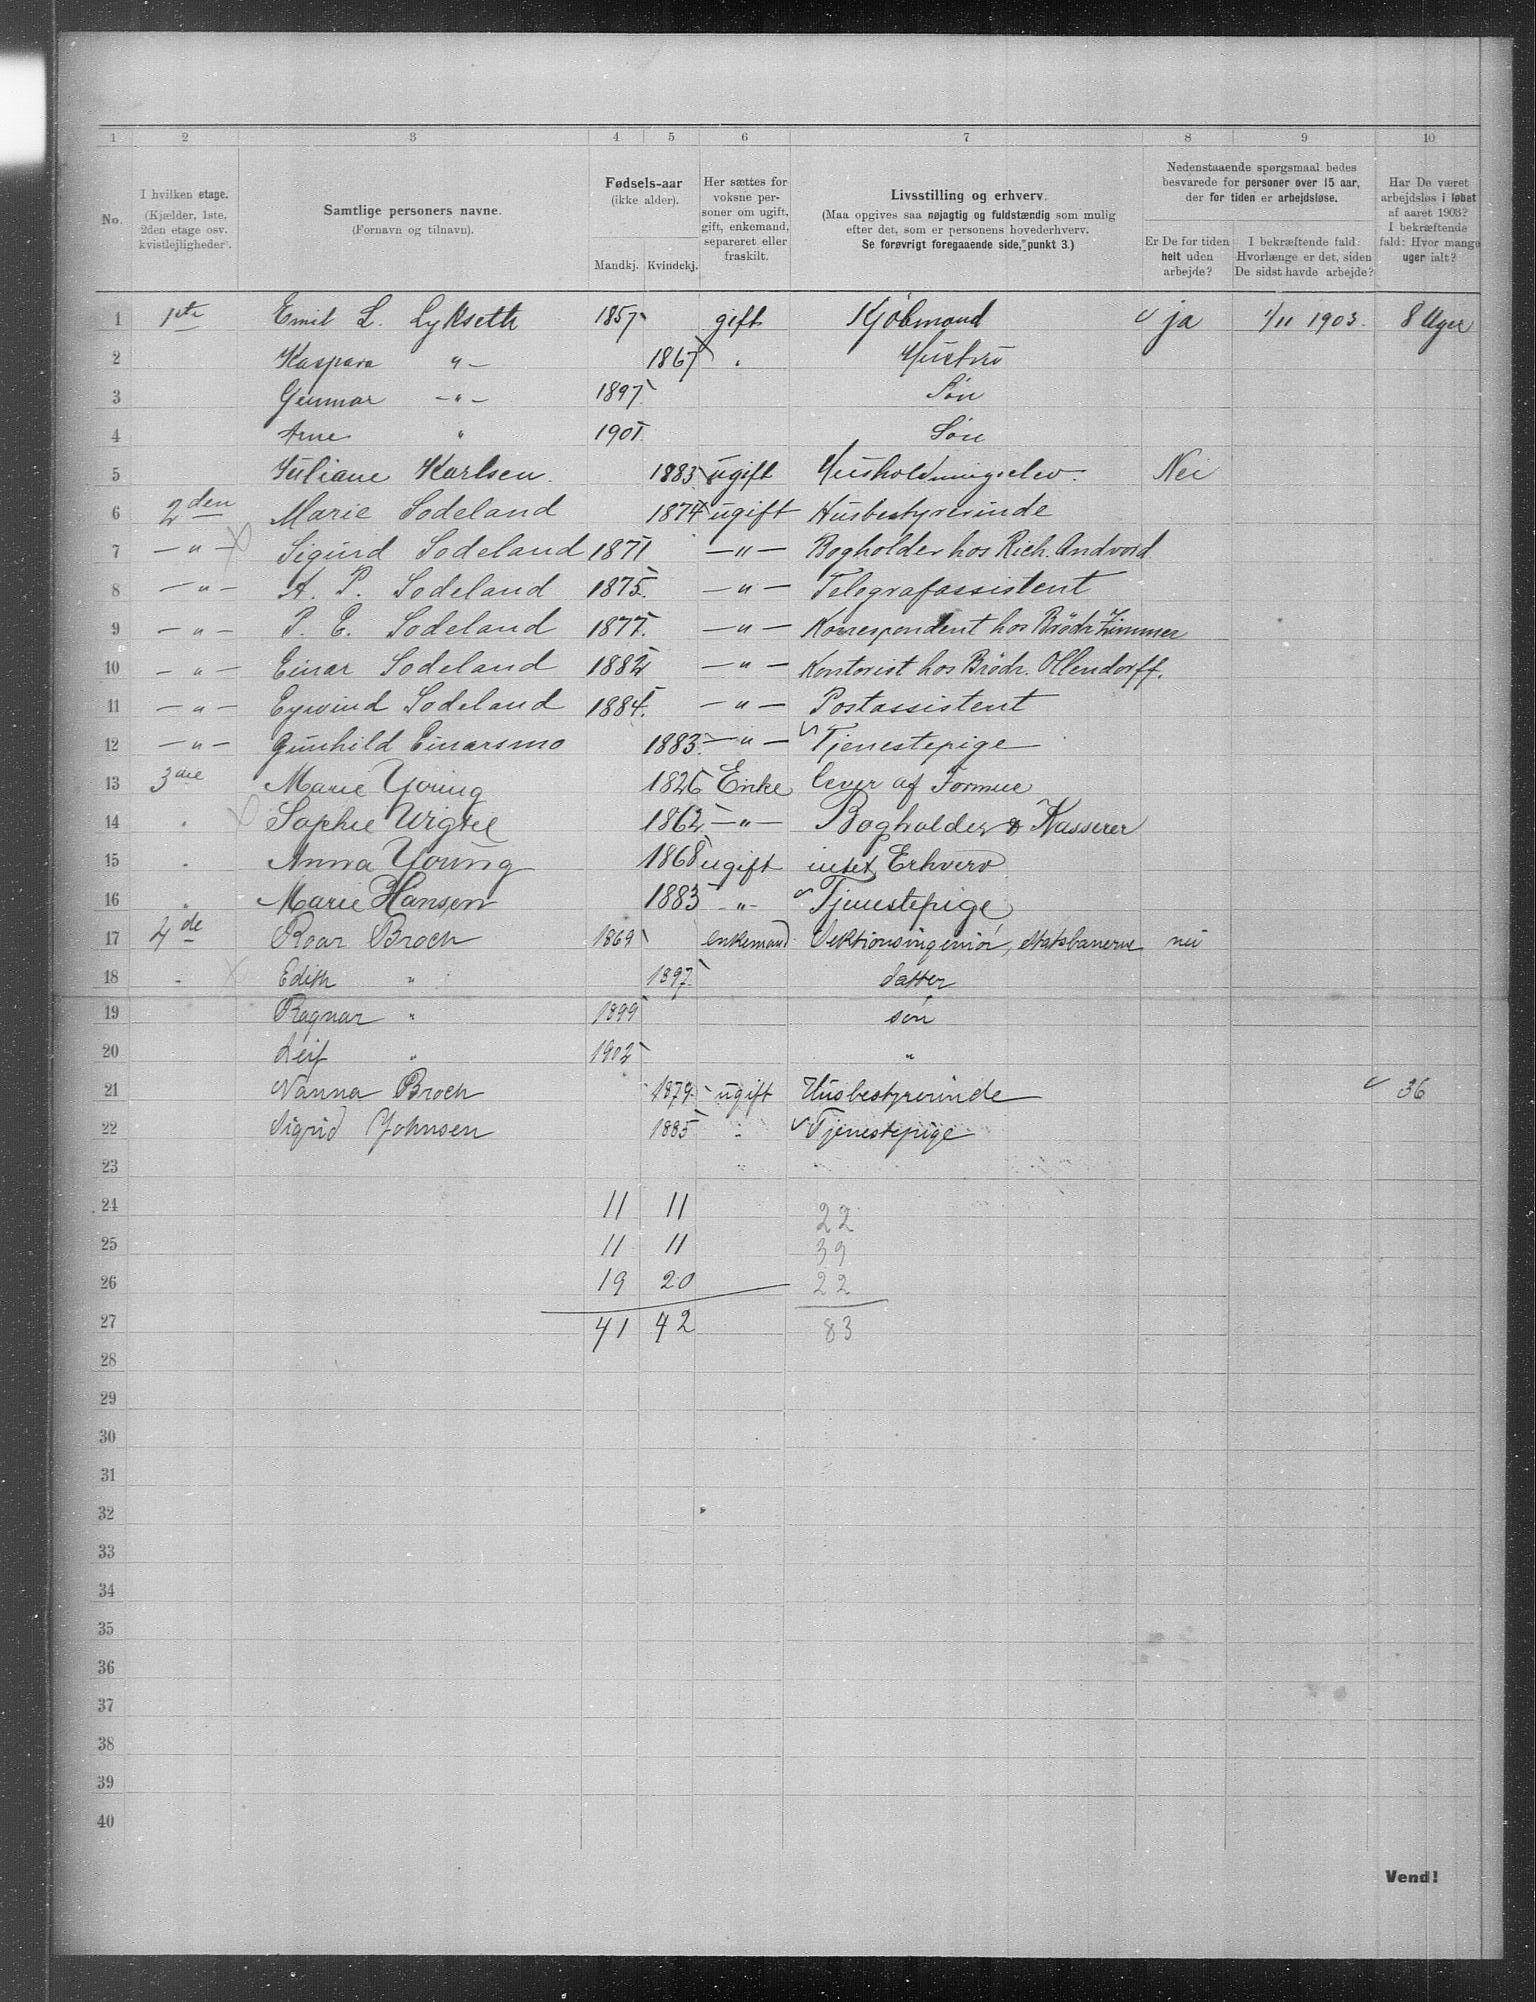 1 2 3 4 5 6 7 8 9 10
No. I hvilken etage. (Kjælder, 1ste, 2den etage osv. kvistlejligheder). Samtlige personers navne. (Fornavn og tilnavn). Fødsels-aar (ikke alder). Mandkj. Kvindekj. Her sættes for voksne personer om ugift, gift, enkemand, separeret eller fraskilt. Livsstilling og erhverv. (Maa opgives saa nøjagtig og fuldstændig som mulig efter det, som er personens hovederhverv. Se forøvrigt foregaaende side, punkt 3.) Nedenstaaende spørgsmaal bedes besvarede for personer over 15 aar, der for tiden er arbejdsløse. Er De for tiden helt uden arbejde? I bekræftende fald: Hvorlænge er det, siden De sidst havde arbejde? Har De været arbejdsløs i løbet af aaret 1903? I bekræftende fald: Hvor mange uger ialt?
1 1ste Emil L. Lykseth 1857 gift Kjøbmand ja 1/11 1903. 8 Uger
2 Kaspara " - 1867 " Hustru
3 Gunnar - " - 1897 Søn
4 Arne " 1901 Søn
5 Juliane Karlsen. 1883 ugift Husholdningselev. Nei
6 2den Marie Sodeland 1874 ugift Husbestyrerinde
7 - " - Sigurd Sodeland 1871 - " - Bogholder hos Rich. Andvord
8 - " - A. P. Sodeland 1875. - " - Telegrafassistent
9 - " - P. E. Sodeland 1877. - " - Korrespondent hos Brødr. Zimmer
10 - " - Einar Sodeland 1882 - " - Kontorist hos Brødr. Ollendorff.
11 - " - Eyvind Sodeland 1884. - " - Postassistent
12 - " - Gunhild Einarsmo 1883. - " - Tjenestepige
13 3die Marie Young 1826 Enke lever af Formue
14 " Sophie Wigtel 1862 - " - Bogholder & Kasserer
15 " Anna Young 1868 ugift intet Erhverv
16 " Marie Hansen 1883 - " - Tjenestepige
17 4de Roar Broch 1869 enkemand Sektionsingeniør, statsbanerne nei
18 " Edith " 1897 datter
19 Ragnar " 1899 søn
20 Leif " 1902 "
21 Nanna Broch 1879. ugift Husbestyrerinde 36
22 Sigrid Johnsen 1885 " Tjenestepige
23
24 11 11 22
25 11 11 39
26 19 20 22
27 41 42 83
28
29
30
31
32
33
34
35
36
37
38
39
40
Vend!